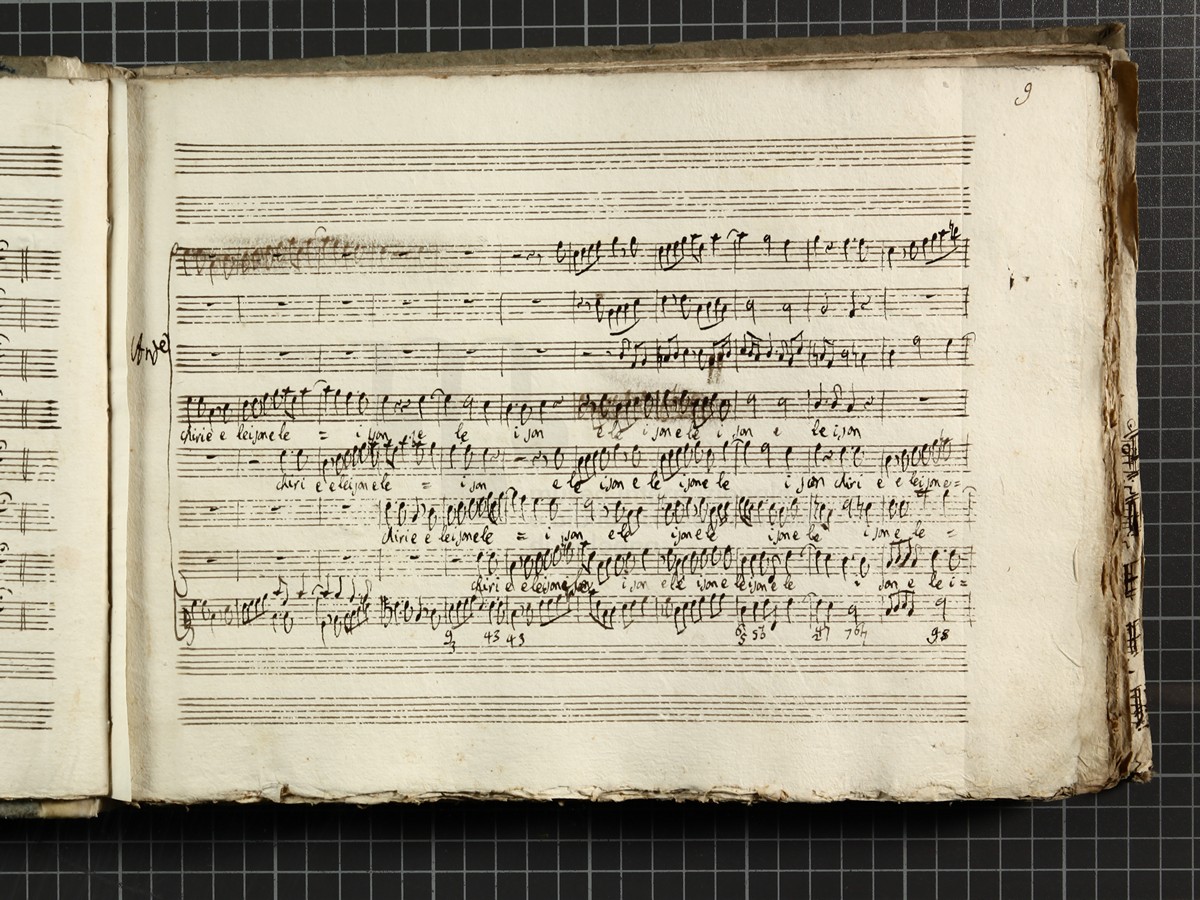 9
And.e
chirie e leisonele = i son e le i son e le i sonele i son e le ison
chiri e e leisonele = i son e le ison e le isone le i son chiri e e leisone=
chirie e leisonele = i son ele isonele isone le isone le =
chiri e e leisone i son ele isone leisone le i son e le i =
9 3 43 43 6 5 56 #7 9 8